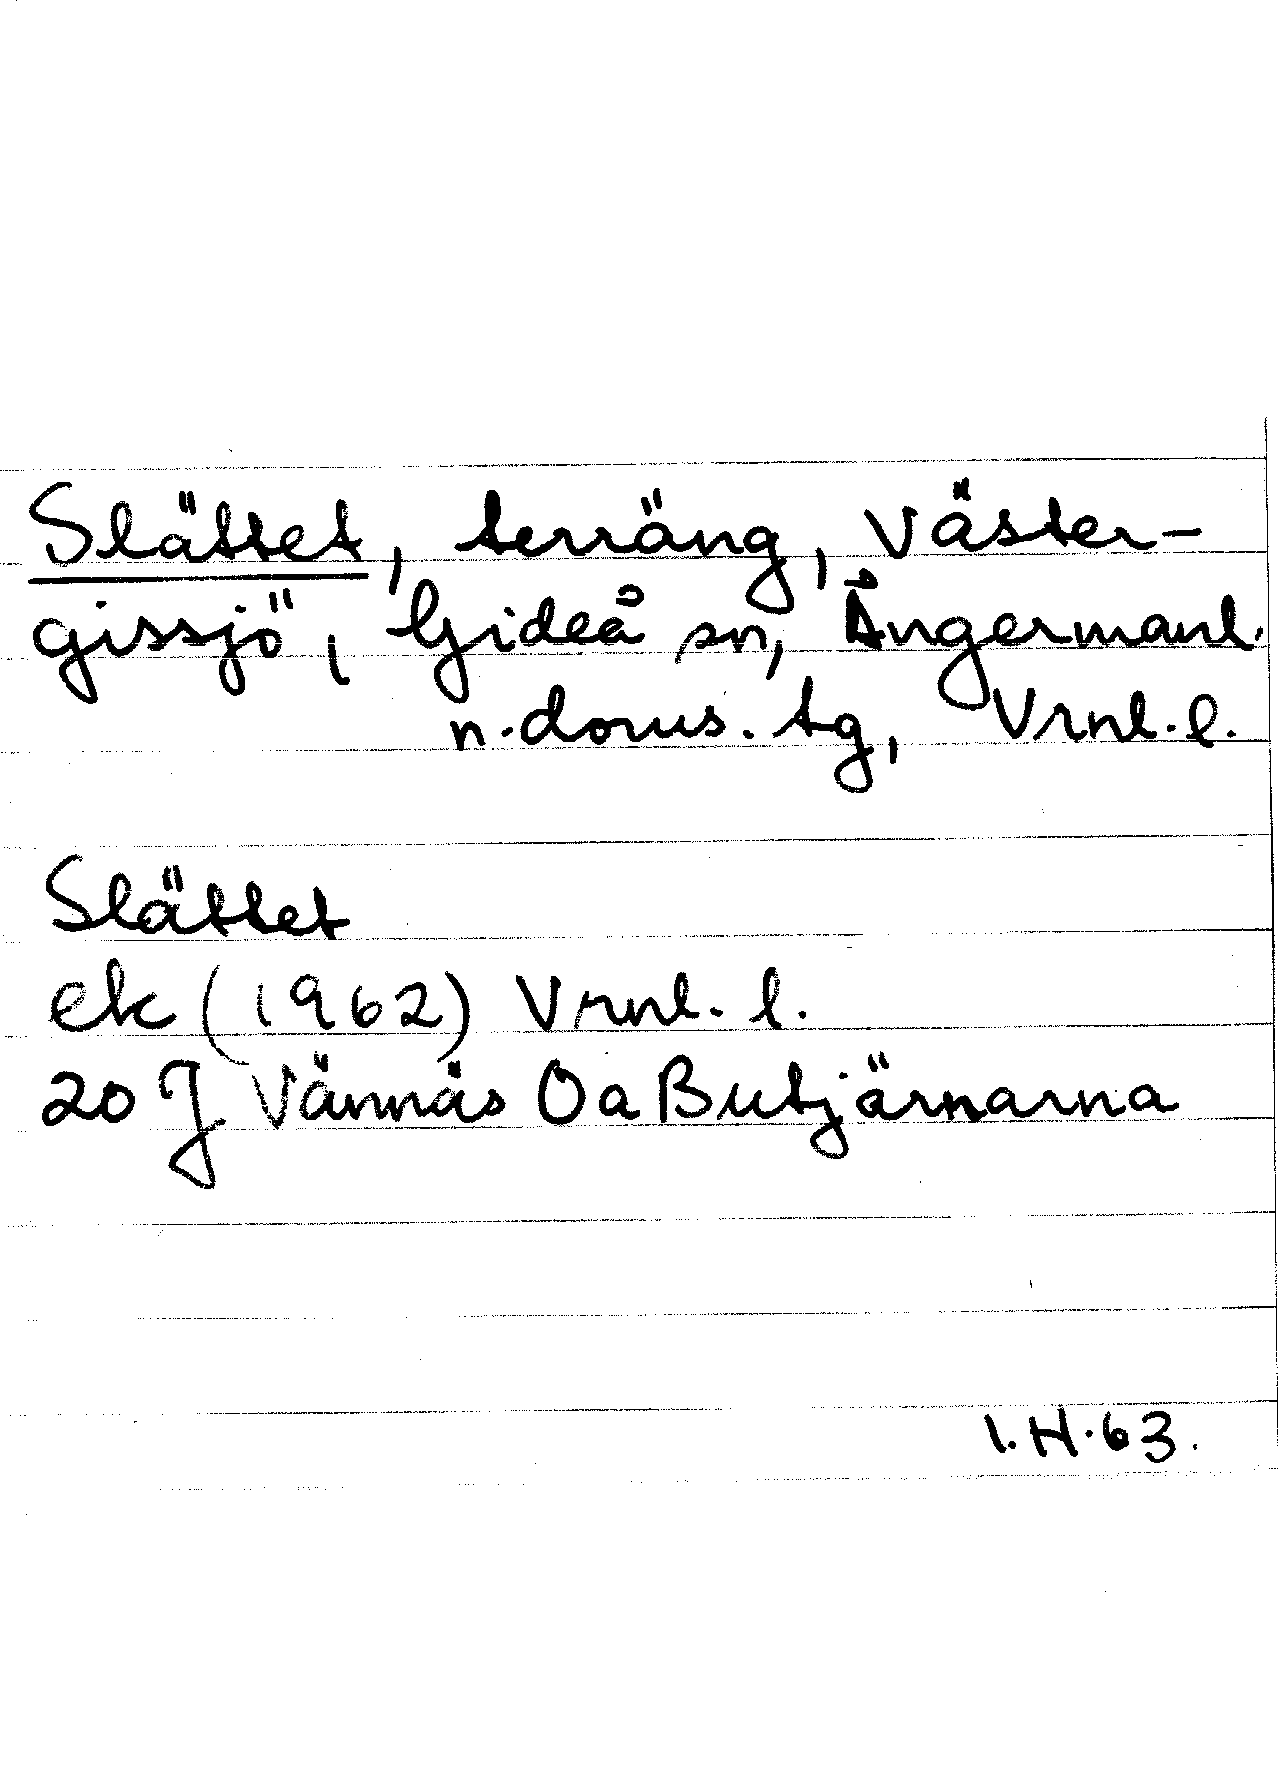 Slättet, terräng, Väster-
gissjö, Gideå sn, Ångermanl.
n. doms. tg, Vrnl. l.
Slättet
ek (1962) Vrnl. l.
20 J Vännäs Oa Butjärnarna
I.H. 63.